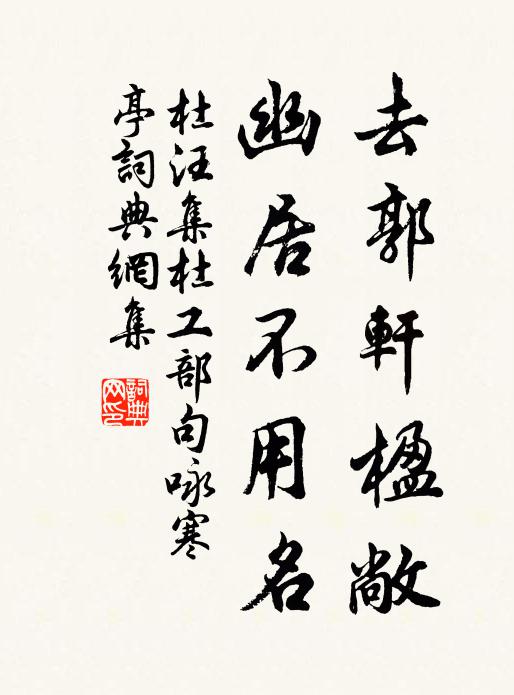 去郭軒楹敞
幽居不用名
杜汪集杜工部句咏寒
亭詞典網集
詞典網印